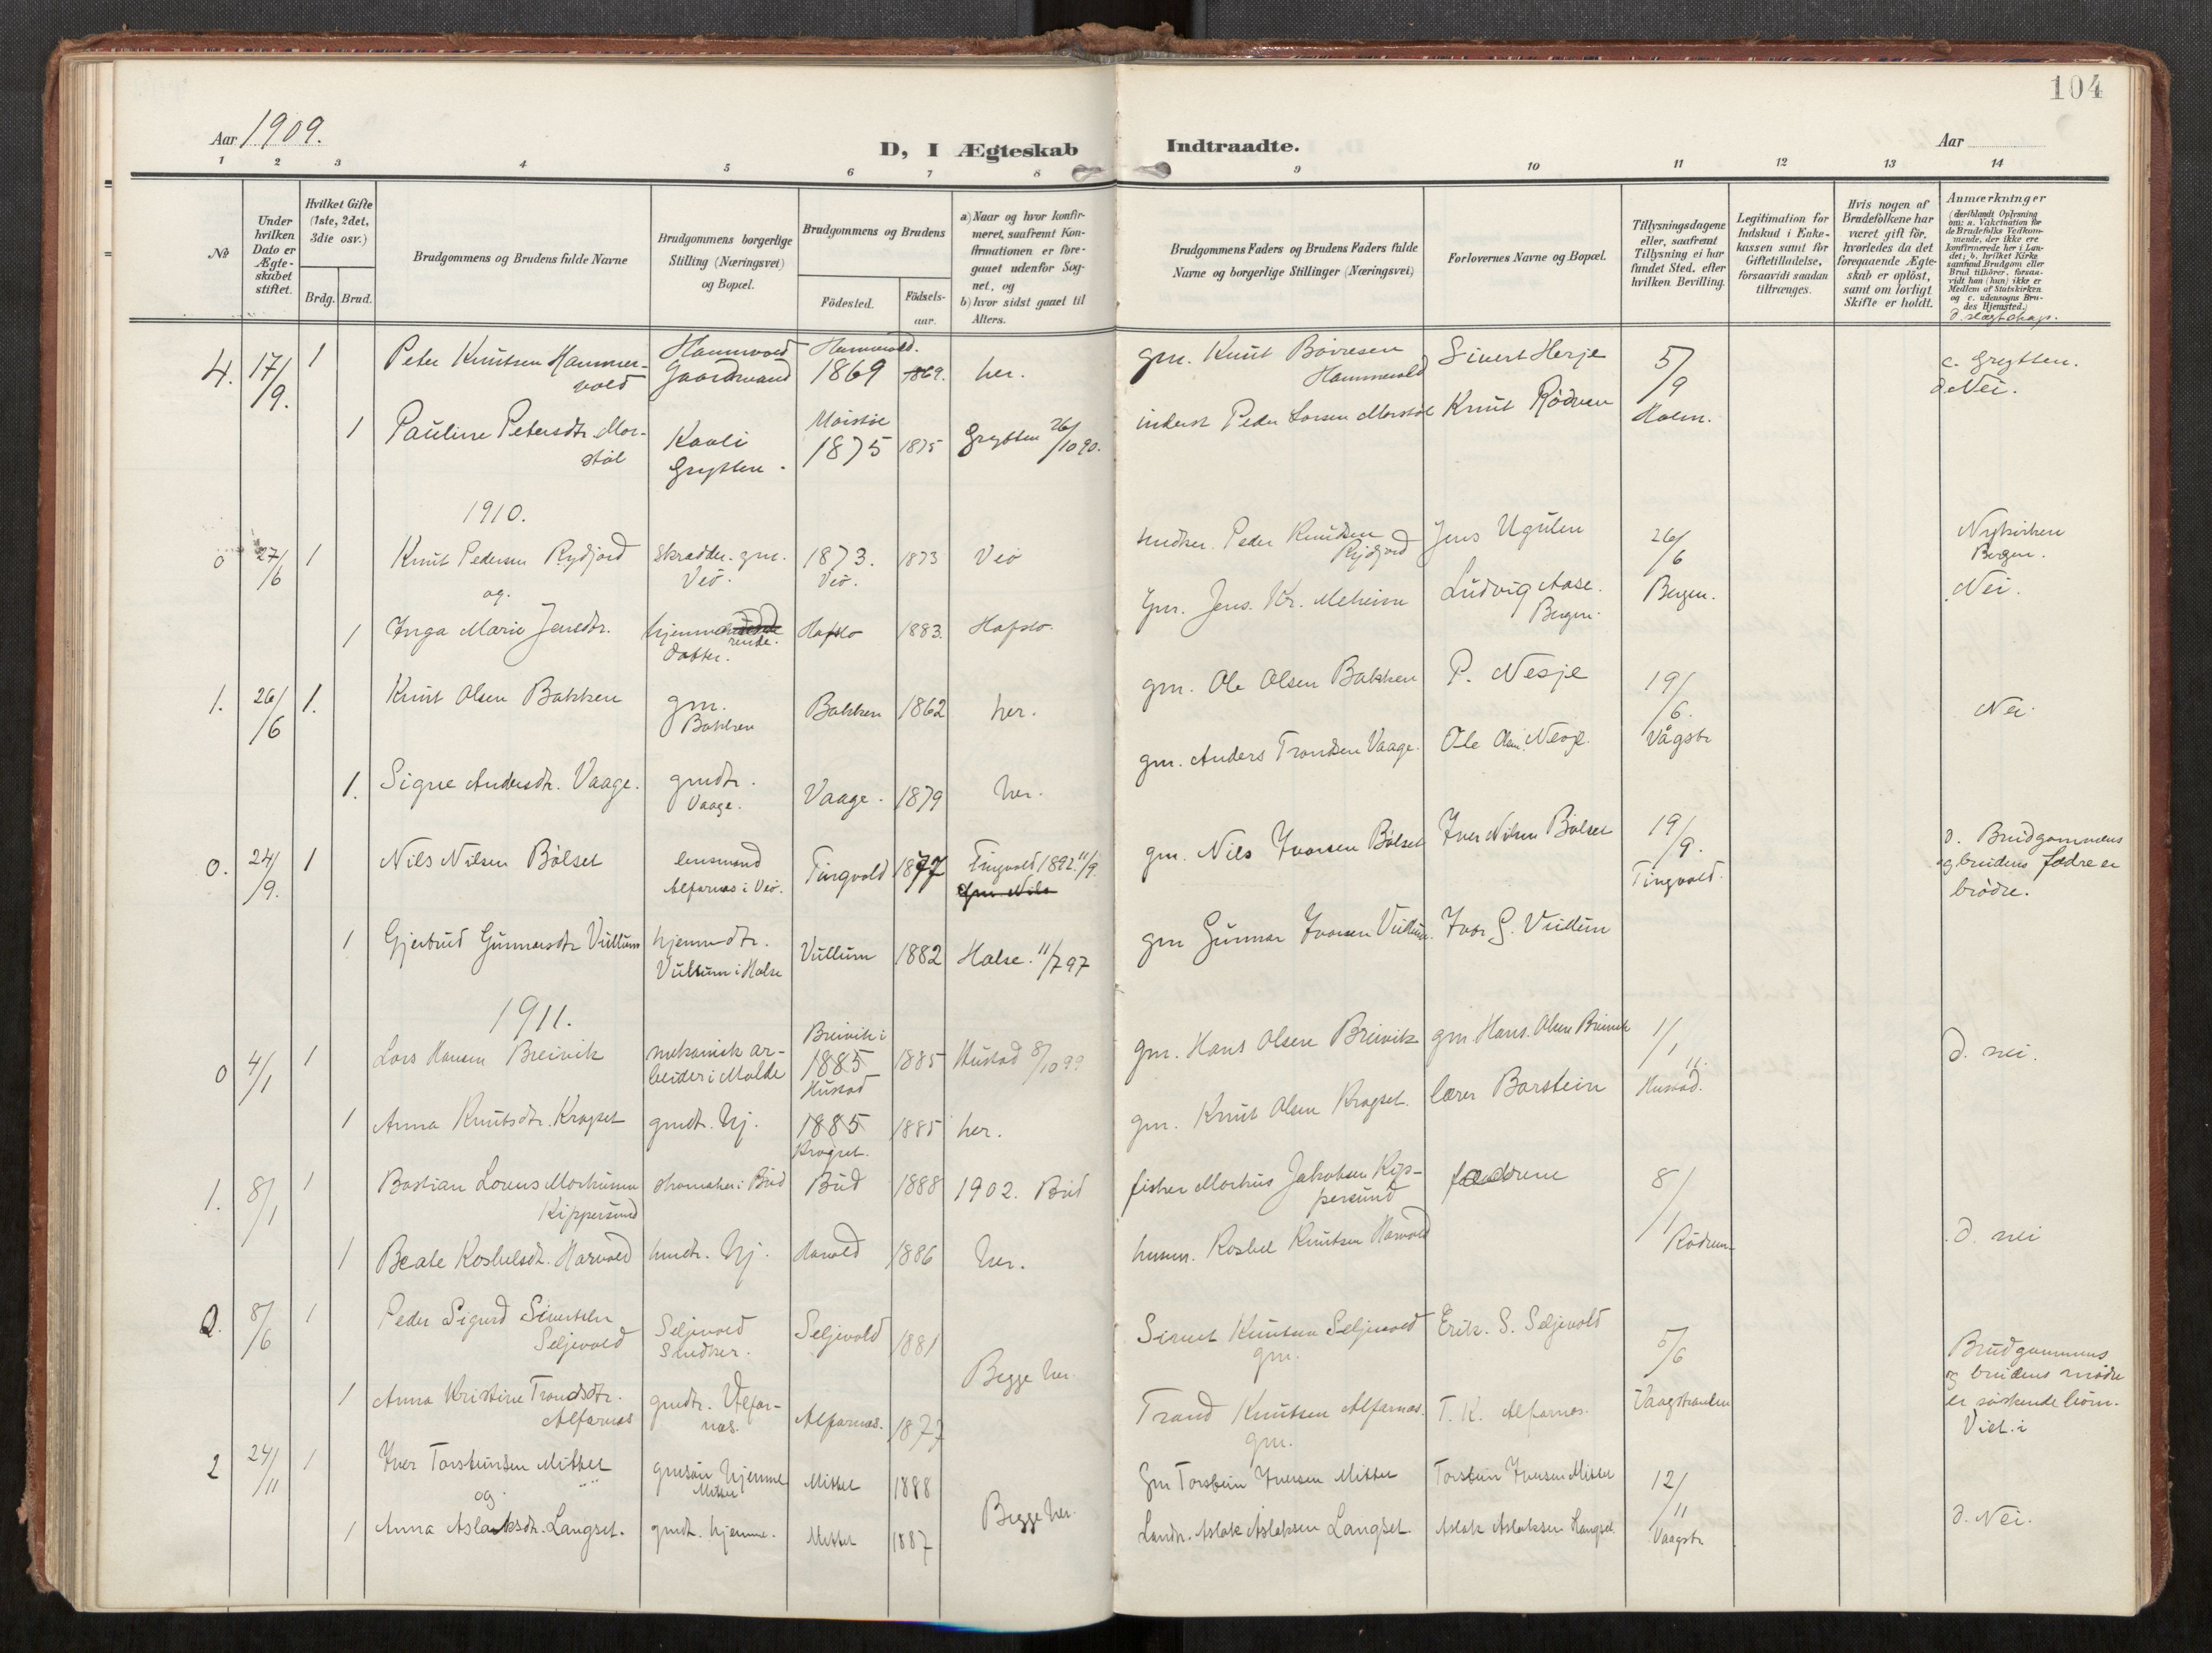 104
Aar 1909.
D, I Ægteskab Indtraadte.
Aar
1 2 3 4 5 6 7 8 9 10 11 12 13 14
No
Under hvilken Dato er Ægte-skabet stiftet.
Hvilket Gifte (1ste, 2det, 3die osv.)
Brdg. Brud.
Brudgommens og Brudens fulde Navne
Brudgommens borgerlige Stilling (Næringsvei) og Bopæl.
Brudgommens og Brudens
Födested.
Födsels-aar.
a) Naar og hvor konfir-meret, saafremt Kon-firmationen er fore-gaaet udenfor Sog-net, og
b) hvor sidst gaaet til Alters.
Brudgommens Faders og Brudens Faders fulde Navne og borgerlige Stillinger (Næringsvei)
Forlovernes Navne og Bopæl.
Tillysningsdagene eller, saafremt Tillysning ei har fundet Sted, efter hvilken Bevilling.
Legitimation for Indskud i Enke-kassen samt for Giftetilladelse, forsaavidt saadan tiltrænges.
Hvis nogen af Brudefolkene har været gift för, hvorledes da det foregaaende Ægte-skab er oplöst, samt om lovligt Skifte er holdt.
Anmærkninger (deriblandt Oplysning om: a. Vakcination for de Brudefolks Vedkom-mende, der ikke ere konfirmerede her i Lan-det; b. hvilket Kirke-samfund Brudgom eller Brud tilhörer, forsaa-vidt han (hun) ikke er Medlem af Statskirken og c. udensogns Bru-des Hjemsted.)
d. slægtskap.
4. 17/9. 1 Peter Knutsen Hammer-vold Hammervold Gaardmand Hammervold. 1869 1869. her. gm. Knut Bövresen Hammervold Sivert Herje 5/9 Holm. c. Grytten. d. Nei.
1 Pauline Petersdtr. Mor-stöl Kavli Grytten. Morstöl 1875 1875 Grytten 26/10 90. inderst Peder Larsen Morstöl Knut Rödven
1910.
0 27/6 1 Knut Pedersen Rydjord skrædder. gm. Veö. 1873. Veö. 1873 Veö snedker. Peder Knudsen Rydjord Jens Ugulen 26/6 Bergen. Nykirken Bergen. Nei.
og.
1 Inga Marie Jensdtr. hjemmeværende. datter. Hafslo 1883. Hafslo. Gm. Jens. Kr. Meheim Ludvig Aase. Bergen.
1. 26/6 1. Knut Olsen Bakken gm. Bakken Bakken 1862 her. gm. Ole Olsen Bakken P. Nesje 19/6. Vågstr Nei.
1. Signe Andersdtr. Vaage. gmdtr. Vaage. Vaage. 1879 her. gm. Anders Trondsen Vaage. Ole Olsen Nesje.
0. 24/9. 1 Nils Nilsen Bölset lensmand Alfarnes i Veö. Tingvold 1877 Tingvold 1892 11/9. gm. Nils Iversen Bölset Iver Nilsen Bölset 19/9. Tingvold. d. Brudgommens og brudens fædre er brödre.
1 Gjertrud Gunnarsdtr Vullum hjemmedtr. Vullum i Halse Vullum 1882 Halse. 11/7 97 gm Gunnar Iversen Vullum. Iver G. Vullum
1911.
0 4/1 1 Lars Hansen Breivik mekanisk ar-beider i Molde Breivik i 1885 Hustad 1885 Hustad 8/10 99 gm. Hans Olsen Breivik gm. Hans Olsen Breivik 1/1 11. Hustad. d. nei.
1 Anna Knutsdtr. Kragset gmdtr. hj. 1885 Kragset. 1885 her. gm. Knut Olsen Kragset. lærer Barstein
1. 8/1 1 Bastian Lorens Kippersund skomaker i Bud Bud 1888 1902. Bud fisker Jakobsen Kip-persund fædrene 8/1 Rödven d. nei
1 Beate hmdtr. hj. Harvold 1886 her. husm. Knutsen Harvold
2. 8/6 1 Peder Sigurd Sivertsen Seljevold Seljevold Snedker. Seljevold 1881 Begge her. Sivert Knutsen Seljevold gm. Erik. S. Seljevold 5/6 Vaagstranden Brudgommens og brudens mödre er söskendebörn. Viet i
1 Anna Kristine Trondsdtr. Alfarnes gmdtr. Alfar-nes. Alfarnes. 1877 Trond Knutsen Alfarnes. gm. T. K. Alfarnes.
2 24/11 1 Iver Torsteinsen Mittet gmsön hjemme Mittet Mittet 1888 Begge her. Gm Torstein Iversen Mittet Torstein Iversen Mittet 12/11 Vaagstr d. Nei.
og
1 Anna Aslaksdtr. Langset. gmdtr. hjemme. Mittet 1887 Landh. Aslak Aslaksen Langset. Aslak Aslaksen Langset.